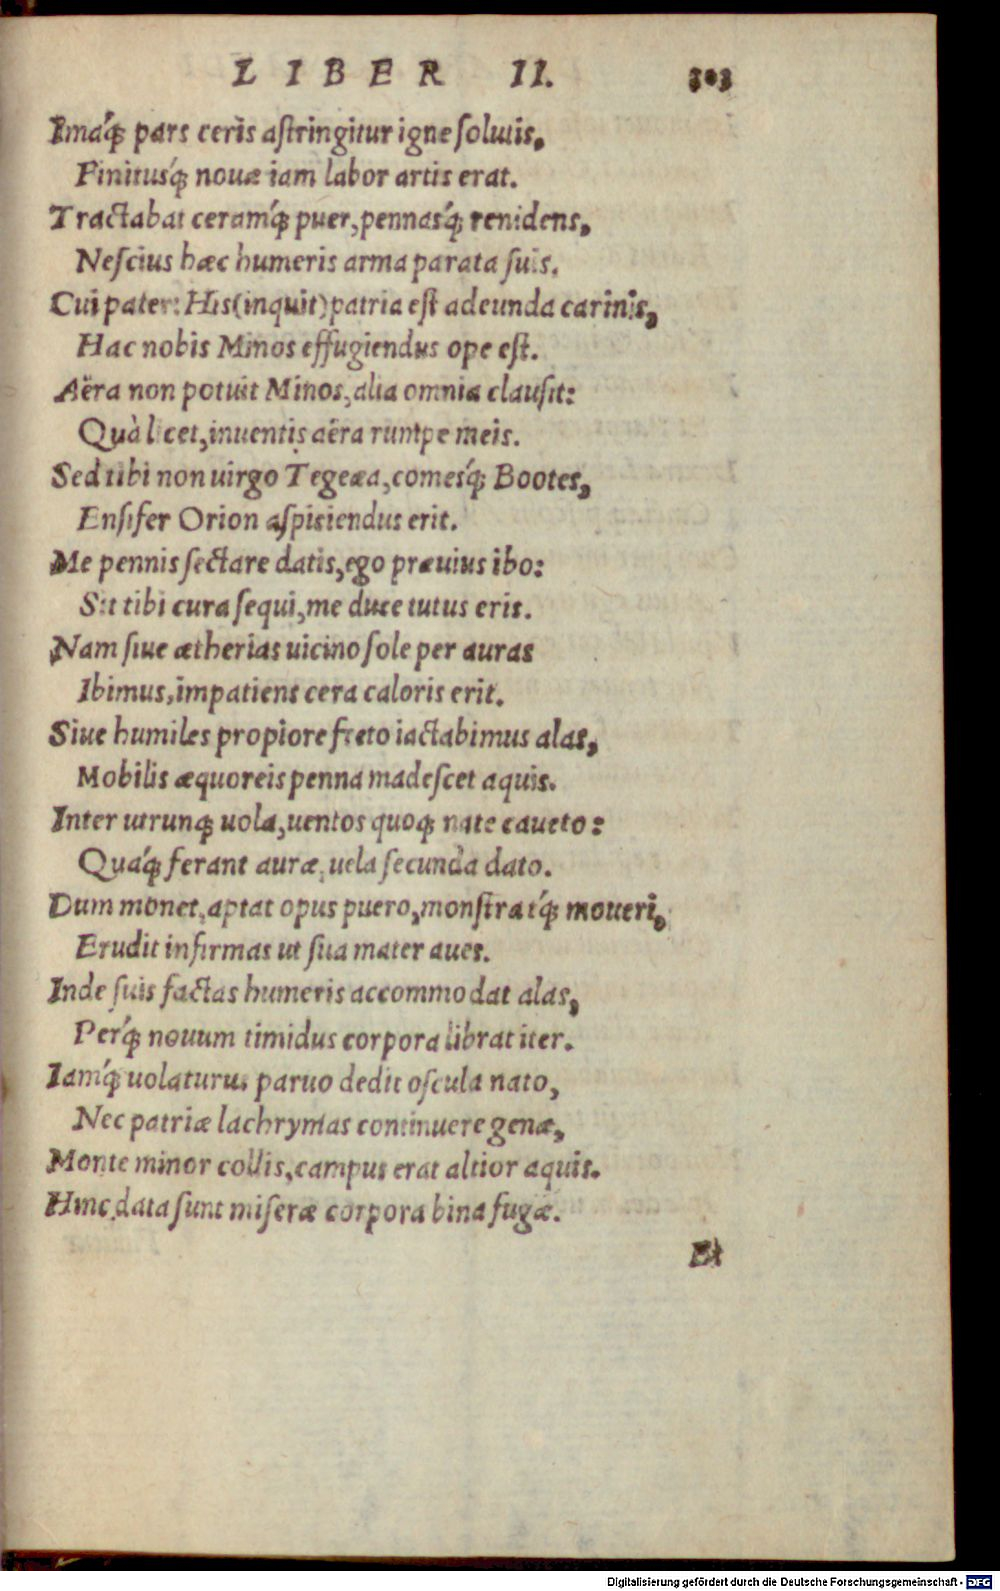 LIBER II. 303
Imaq́; pars ceris aſtringitur igne ſolutis,
Finitusq́; nouæ iam labor artis erat.
Tractabat ceramq́; puer, pennasq́; renidens,
Neſcius hæc humeris arma parata ſuis.
Cui pater: His (inquit) patria eſt adeunda carinis,
Hac nobis Minos effugiendus ope eſt.
Aëra non potuit Minos, alia omnia clauſit:
Quà licet, inuentis aëra rumpe meis.
Sed tibi non uirgo Tegeæa, comesq́; Bootes,
Enſifer Orion aſpiciendus erit.
Me pennis ſectare datis, ego præuius ibo:
Sit tibi cura ſequi, me duce tutus eris.
Nam ſiue ætherias uicino ſole per auras
Ibimus, impatiens cera caloris erit.
Siue humiles propiore freto iactabimus alas,
Mobilis æquoreis penna madeſcet aquis.
Inter utrunq; uola, uentos quoq; nate caueto:
Quáq́; ferant auræ, uela ſecunda dato.
Dum monet, aptat opus puero, monſtratq́; moueri,
Erudit infirmas ut ſua mater aues.
Inde ſuis factas humeris accommodat alas,
Perq́; nouum timidus corpora librat iter.
Iamq́; uolaturus paruo dedit oſcula nato,
Nec patriæ lachrymas continuere genæ,
Monte minor collis, campus erat altior aquis.
Hinc data ſunt miſeræ corpora bina fugæ.
Et
Digitalisierung gefördert durch die Deutsche Forschungsgemeinschaft - DFG